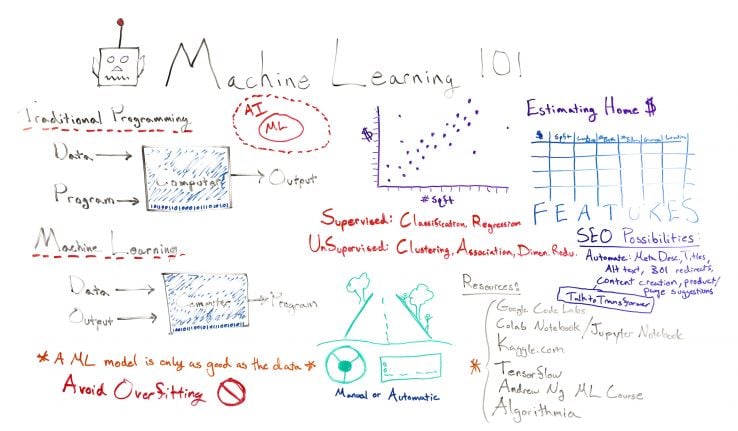 Machine Learning 101
Traditional Programming
Data
Program
Computer
Output
AI
ML
$
# Sqft
Estimating Home $
$ Sqft
FEATURES
Supervised: Classification, Regression
UnSupervised: Clustering, Association, Dimen. Redu.
SEO Possibilities:
Automate: Meta Desc, Titles,
Alt text, 301 redirects,
Content creation, product/
page suggestions
Talk to Transformer
Machine Learning
Data
Output
Computer
Program
* A ML model is only as good as the data *
Avoid Overfitting
Manual or Automatic
Resources:
Google Code Labs
Colab Notebook/Jupyter Notebook
Kaggle.com
* Tensorflow
Andrew Ng ML Course
Algorithmia